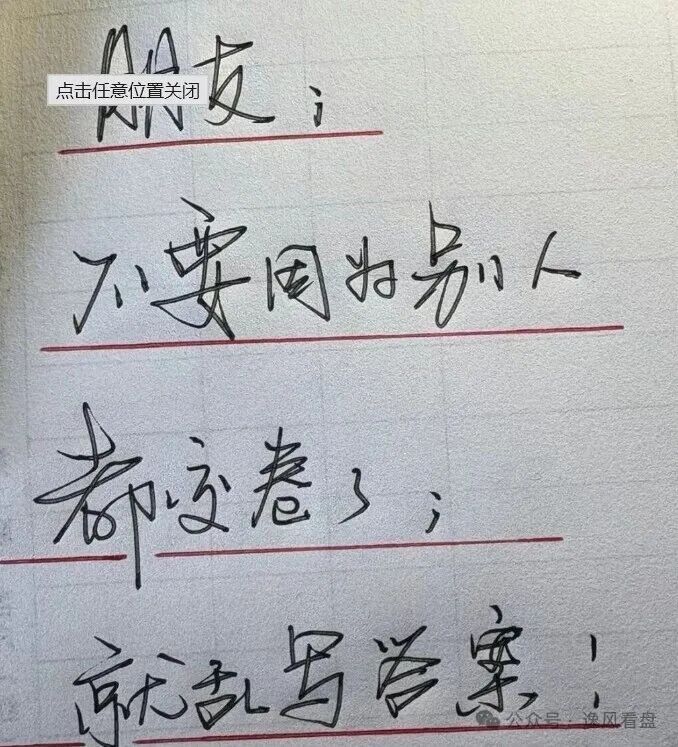 朋友；
点击任意位置关闭
不要因为别人
都交卷了；
就乱写答案！
公众号·逸风看盘